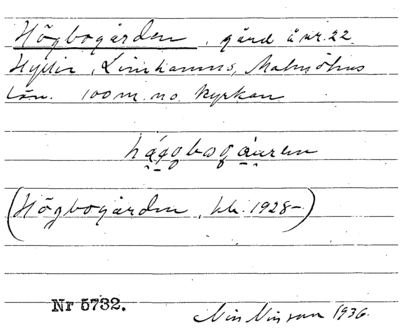 Högbogården, gård å nr. 22
Hyllie, Limhamns, Malmöhus
län. 100 m. no. kyrkan
(Högbogården, kb. 1928-)
Nr 5732.
Nils Nilsson 1936.